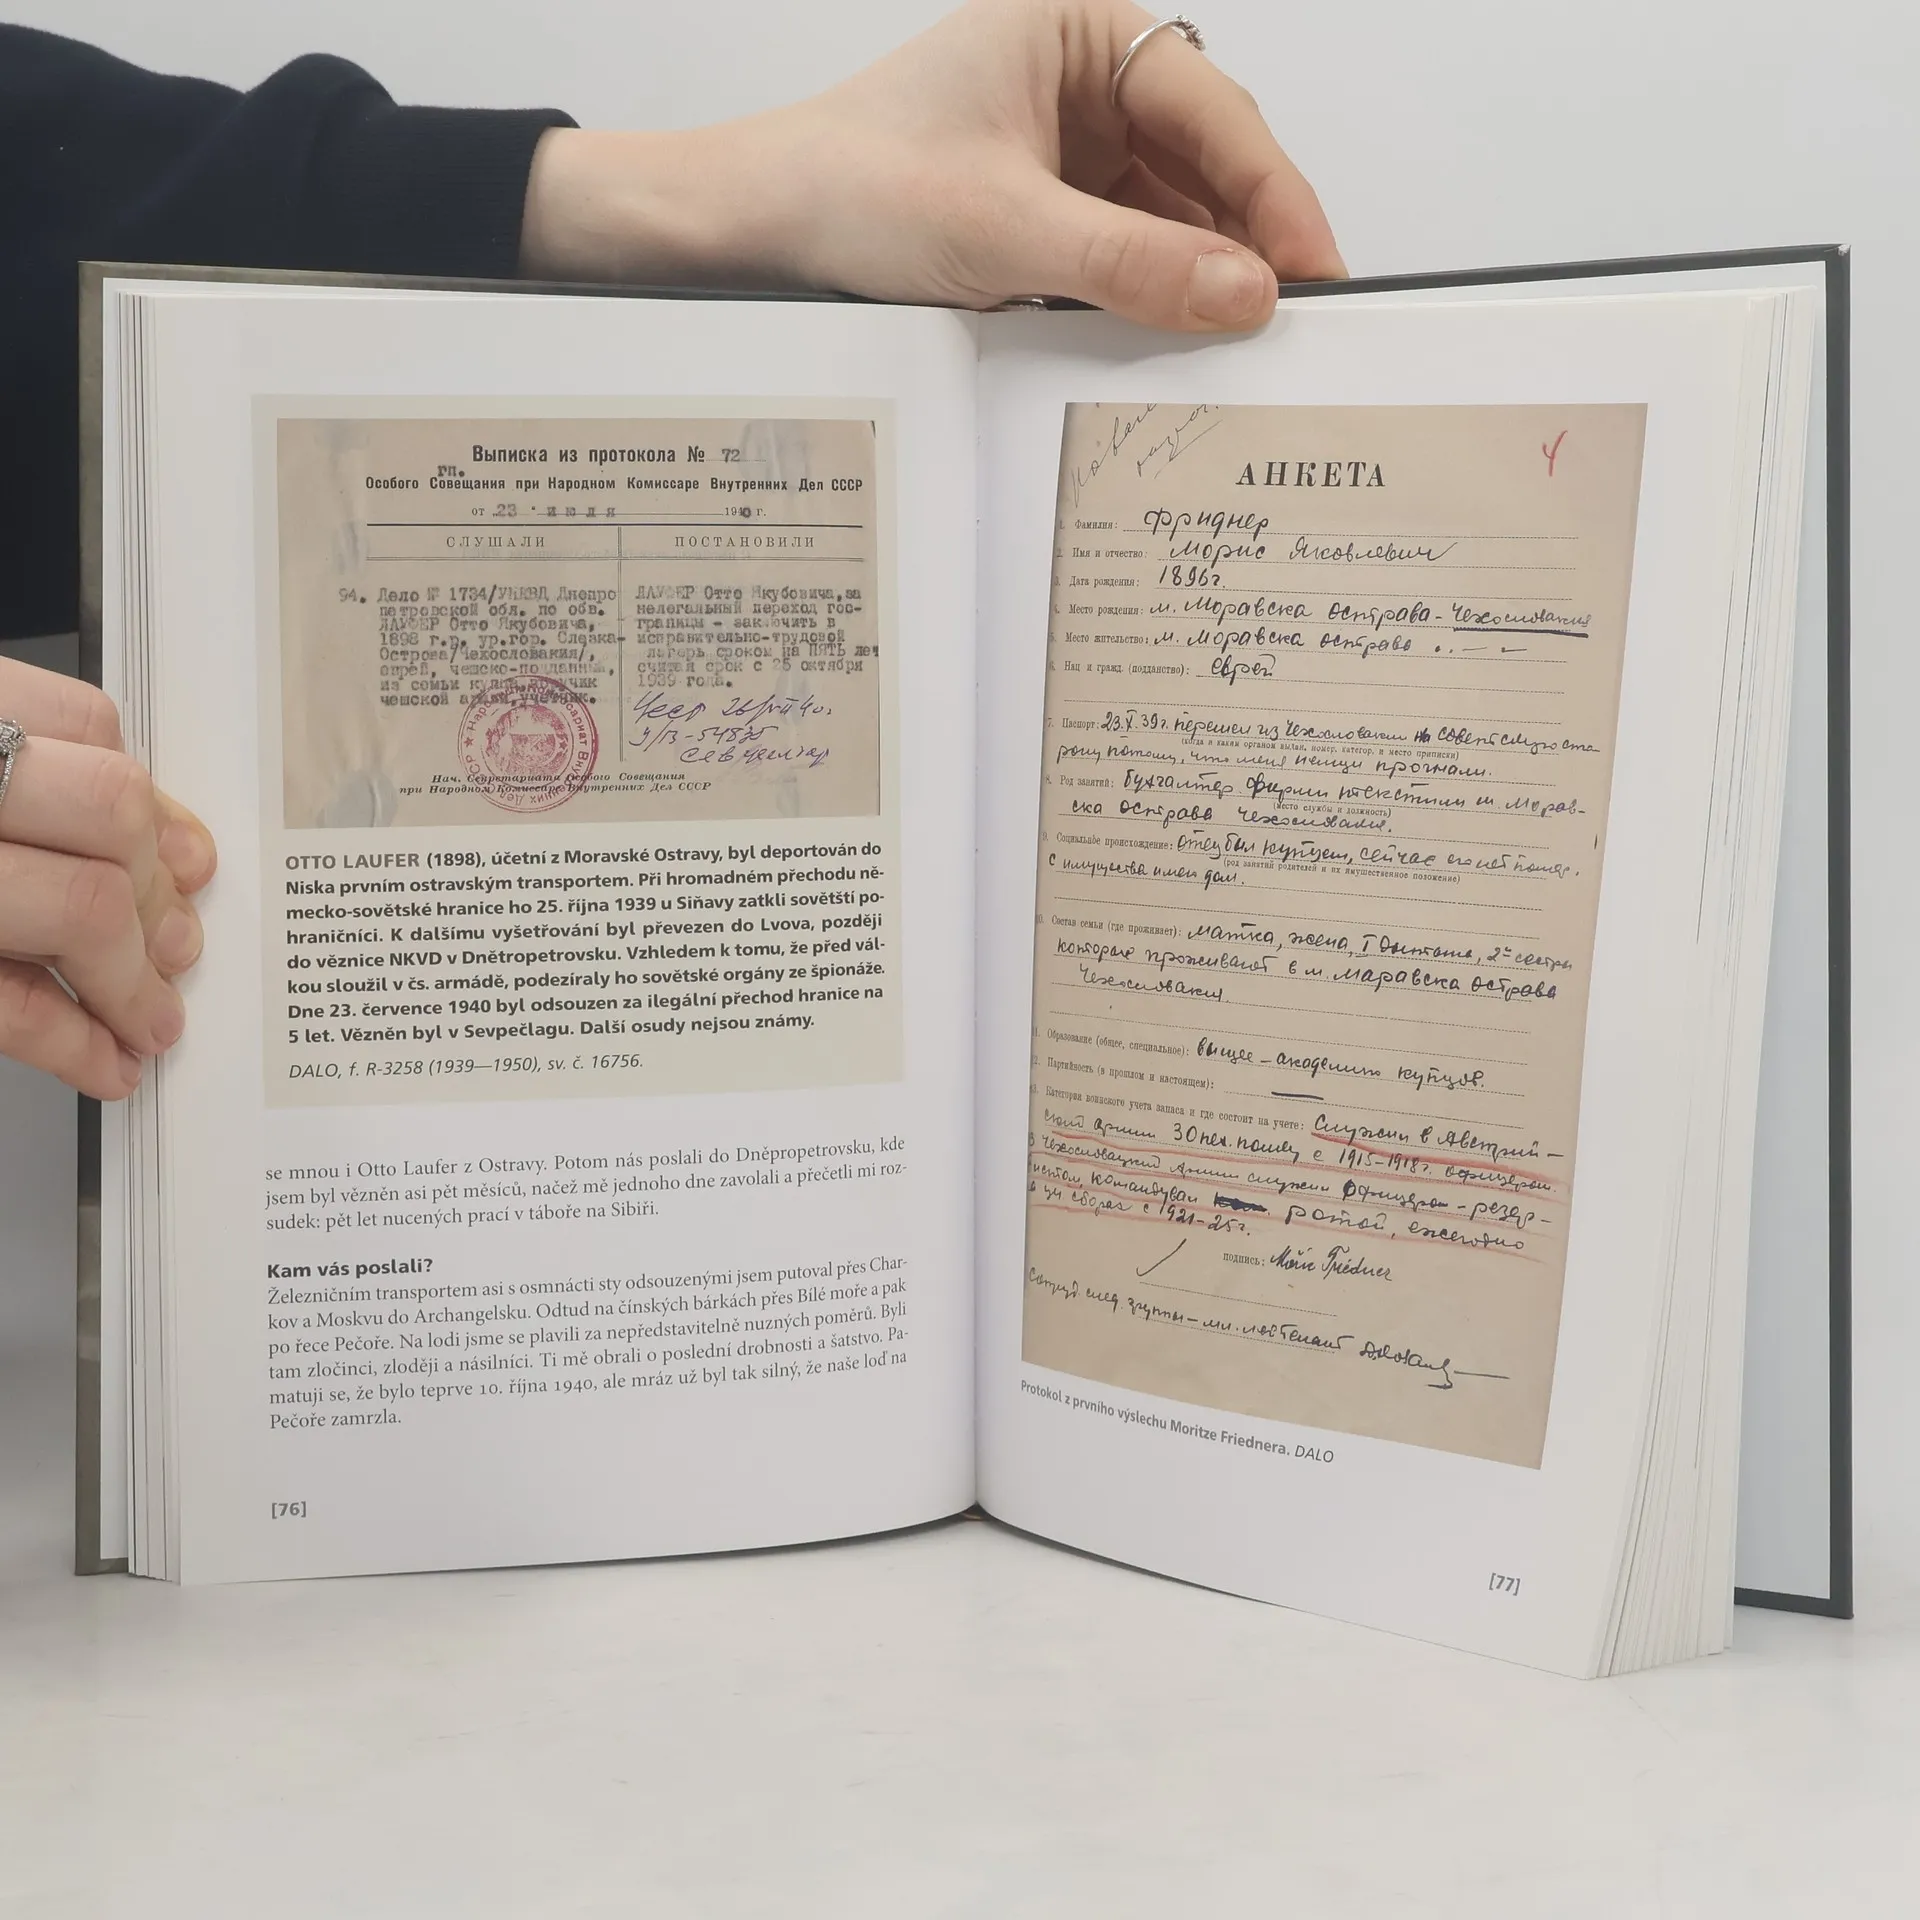 Выписка из протокола № 72
гп.
Особого Совещания при Народном Комиссаре Внутренних Дел СССР
от „23 “ июля 1940 г.
СЛУШАЛИ
94. Дело № 1734/УНКВД Днепро
петровской обл. по обв.
ЛАУФЕР Отто Якубовича,
1898 г.р. ур.гор.
Острова/Чехословакия/,
еврей, чешско-подданный,
из семьи купца,
чешской армии, учетчик.
ПОСТАНОВИЛИ
ЛАУФЕР Отто Якубовича, за
нелегальный переход гос-
границы - заключить в
исправительно-трудовой
лагерь сроком на ПЯТЬ лет
считая срок с 25 октября
1939 года.
Нач. Секретариата Особого Совещания
при Народном Комиссаре Внутренних Дел СССР
OTTO LAUFER (1898), účetní z Moravské Ostravy, byl deportován do
Niska prvním ostravským transportem. Při hromadném přechodu ně-
mecko-sovětské hranice ho 25. října 1939 u Siňavy zatkli sovětští po-
hraničníci. K dalšímu vyšetřování byl převezen do Lvova, později
do věznice NKVD v Dnětropetrovsku. Vzhledem k tomu, že před vál-
kou sloužil v čs. armádě, podezíraly ho sovětské orgány ze špionáže.
Dne 23. července 1940 byl odsouzen za ilegální přechod hranice na
5 let. Vězněn byl v Sevpečlagu. Další osudy nejsou známy.
DALO, f. R-3258 (1939—1950), sv. č. 16756.
se mnou i Otto Laufer z Ostravy. Potom nás poslali do Dněpropetrovsku, kde
jsem byl vězněn asi pět měsíců, načež mě jednoho dne zavolali a přečetli mi roz-
sudek: pět let nucených prací v táboře na Sibiři.
Kam vás poslali?
Železničním transportem asi s osmnácti sty odsouzenými jsem putoval přes Char-
kov a Moskvu do Archangelsku. Odtud na čínských bárkách přes Bílé moře a pak
po řece Pečoře. Na lodi jsme se plavili za nepředstavitelně nuzných poměrů. Byli
tam zločinci, zloději a násilníci. Ti mě obrali o poslední drobnosti a šatstvo. Pa-
matuji se, že bylo teprve 10. října 1940, ale mráz už byl tak silný, že naše loď na
Pečoře zamrzla.
[76]
4
АНКЕТА
1. Фамилия: Фриднер
2. Имя и отчество: Морис Яковлевич
3. Дата рождения: 1896г.
4. Место рождения: м. Моравска острава - Чехословакия
5. Место жительство: м. Моравска острава
6. Нац и гражд. (подданство): еврей
7. Паспорт: 23.X.39г. перешел из Чехословакии на советскую сто-
(когда и каким органом выдан, номер, категор. и место приписки)
рону потому, что меня немцы прогнали.
8. Род занятий: Бухгалтер фирмы м. Морав-
(место службы и должность)
ска острава Чехословакия.
9. Социальное происхождение: отец был купцем, сейчас
(род занятий родителей и их имущественное положение)
С имущества имел дом.
10. Состав семьи (где проживает): матка, жена, 2 сестры
которые проживают в м. Маравска острава
Чехословакия.
11. Образование (общее, специальное): высшее - академию купцов.
12. Партийность (в прошлом и настоящем): —
13. Категория воинского учета запаса и где состоит на учете: Служил в Австрий-
ской армии 30 пех. полку с 1915-1918г. офицером.
В Чехословацкой армии служил офицером - резер-
вистом, командовал ротой, ежегодно
сборах с 1921-25г.
подпись: Friedner
след. группы - мл. лейтенант
Protokol z prvního výslechu Moritze Friednera. DALO
[77]